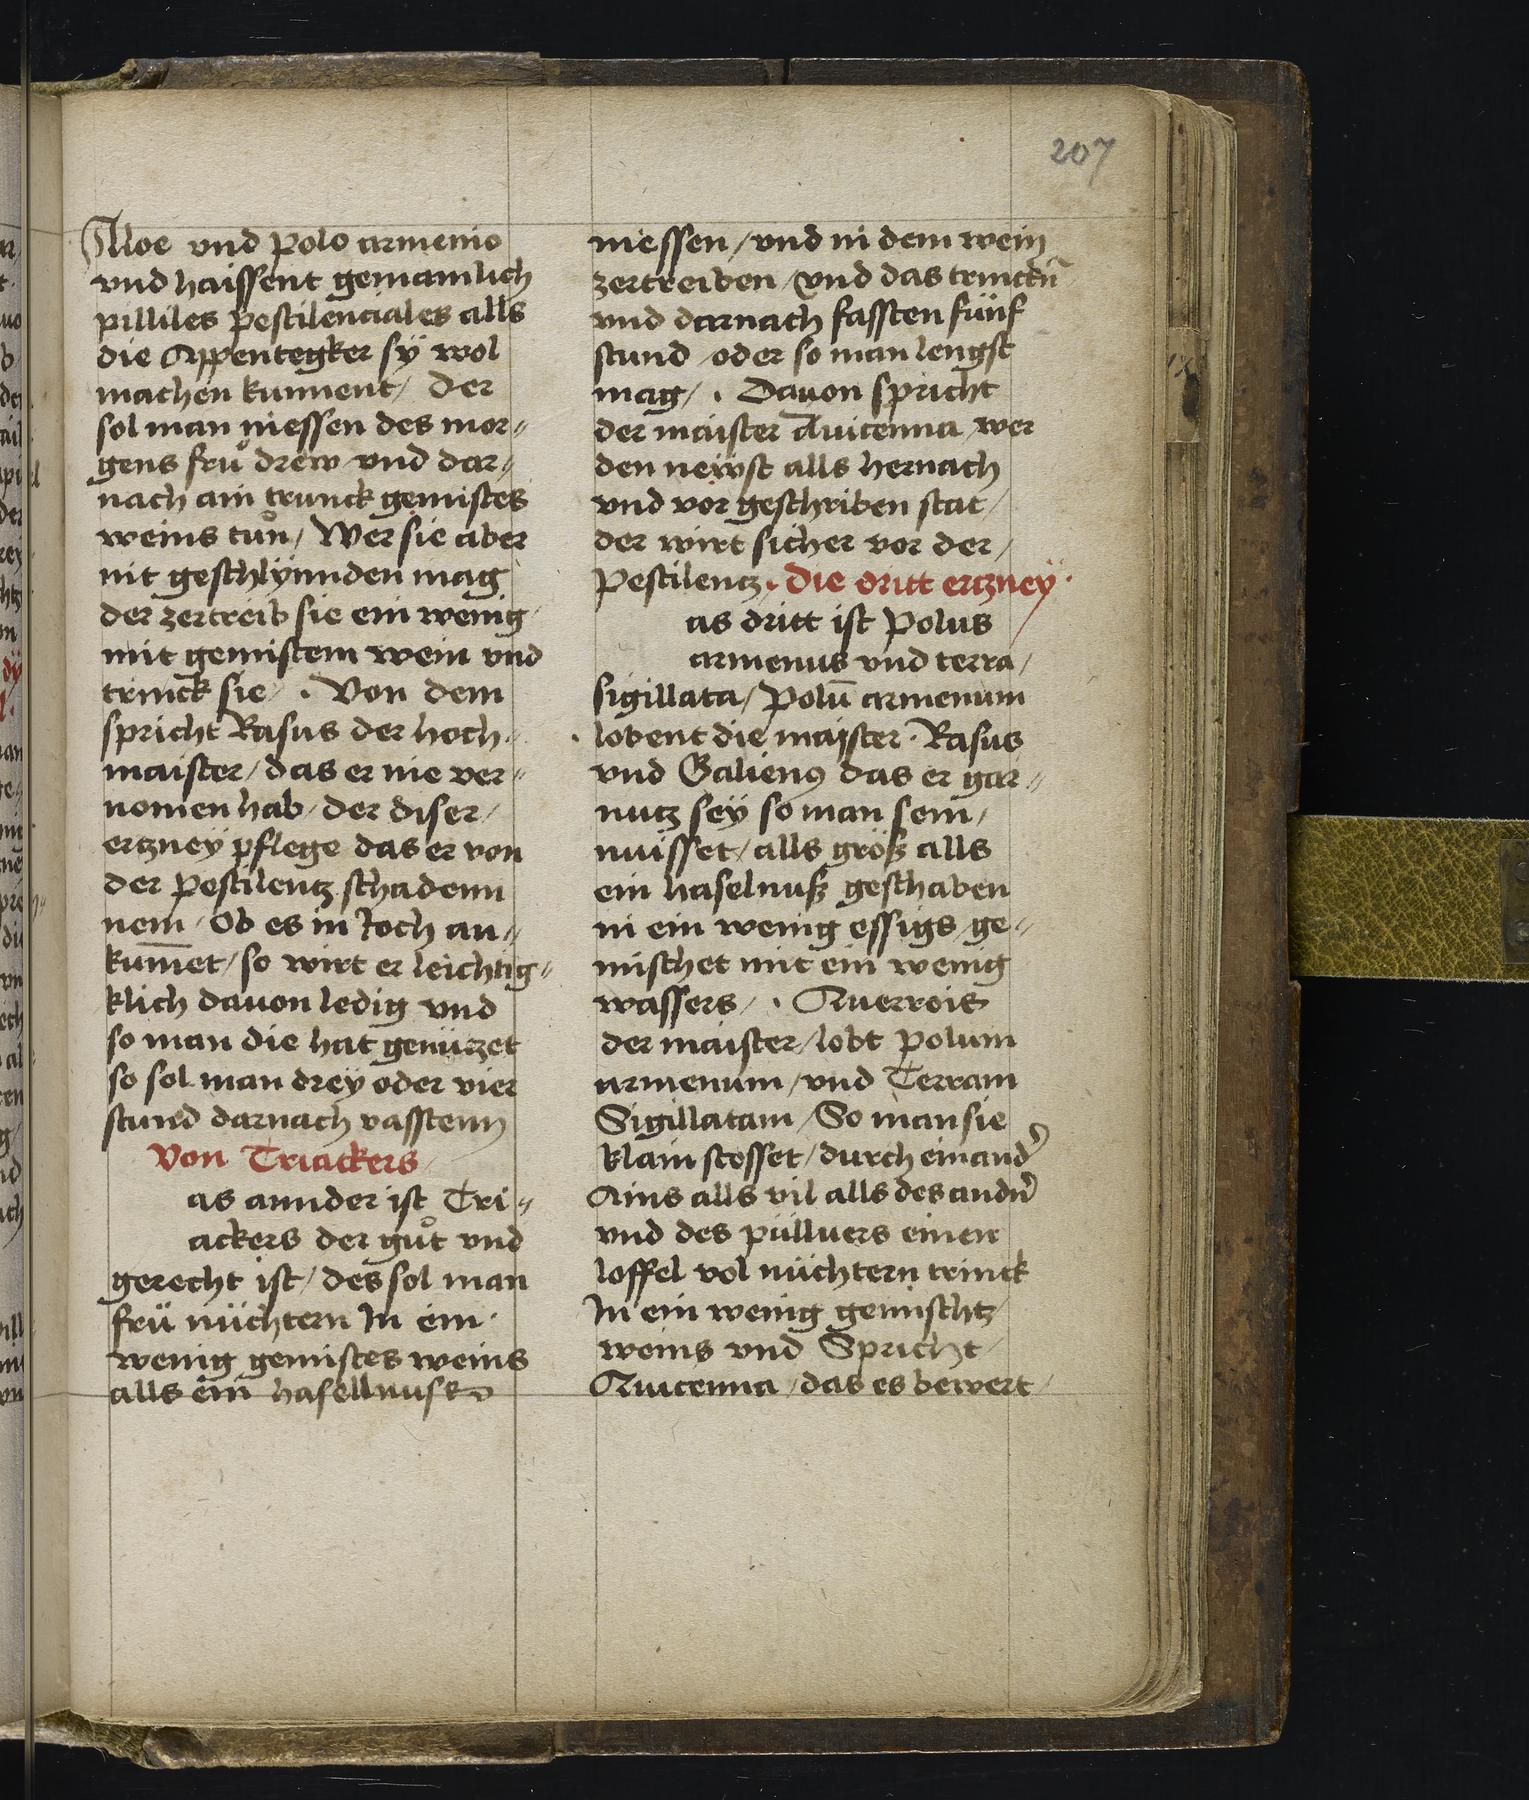 207
Aloe vnd polo armenio
vnd haissent gemainlich
pillules pestilenciales alls
die Appentegker sÿ wol
machen kunnent / der
sol man niessen des mor„
gens frů drew vnd dar„
nach ain trunck gemistes
weins tůn / Wer sie aber
nit geschlÿnnden mag
der zertreib sie ein wenig
mit gemistem wein vnd
trinck sie / . Von dem
spricht Rasus der hoch„
maister / das er nie ver„
nomen hab / der diser /
ertzneÿ pflege das er von
der pestilentz schadenn
nem / Ob es in Joch an„
kum̄et / so wirt er leichtig„
klich dauon ledig vnd
so man die hat genützet
so sol man dreÿ oder vier
stund darnach vasstenn
Von Triackers
as annder ist Tri„
ackers der gůt vnd
gerecht ist / des sol man
frü nüchtern In ein
wenig gemistes weins
alls ein hasellnuss
niessen / vnd in dem wein
zertreiben / vnd das trinckn̄
vnd darnach fassten fünf
stund / oder so man lengst
mag / . Dauon spricht
der maister Auicenna / wer
den newst alls hernach
vnd vor geschriben stat /
der wirt sicher vor der /
pestilentz . die dritt ertzneÿ .
as dritt ist polus
armenus vnd terra /
sigillata / polū armenum
lobent die maister . Rasus
vnd Galienꝯ das er gar„
nutz seÿ so man sein /
nüisset / alls größ alls
ein haselnuß geschaben
in ein wenig essigs / ge„
mischet mit ein wenig
wassers / . Auerrois
der maister / lobt polum
armenum / vnd Terram
Sigillatam / So man sie
klain stosset / durch einand᾽
Ains alls vil alls des andn᾽
vnd des pülluers einen
loffel vol nüchtern trinck
In ein wenig gemischtz /
weins vnd Spricht /
Auicenna / das es bewert /